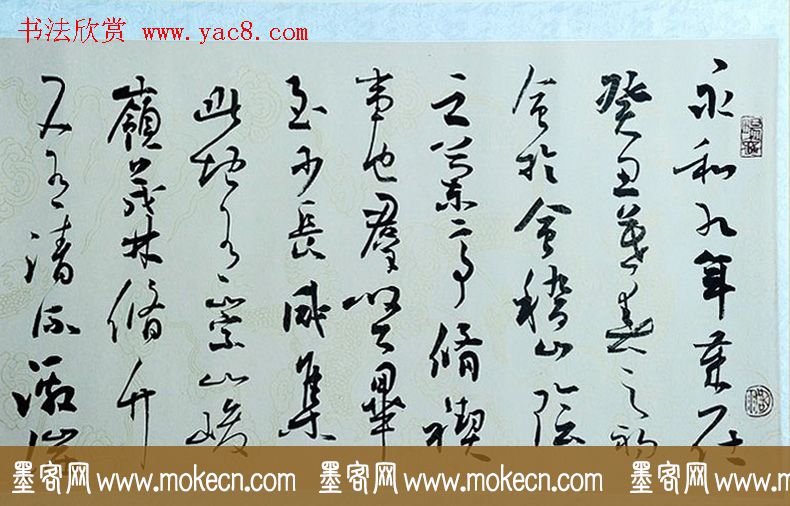 书法欣赏 www.yac8.com
永和九年歲在
癸丑暮春之初
會於會稽山陰
之蘭亭脩禊
事也羣賢畢
至少長咸集
此地有崇山峻
嶺茂林脩竹
又有清流激湍
墨客网 www.mokecn.com 墨客网 www.mokecn.com 墨客网 www.mokecn.com